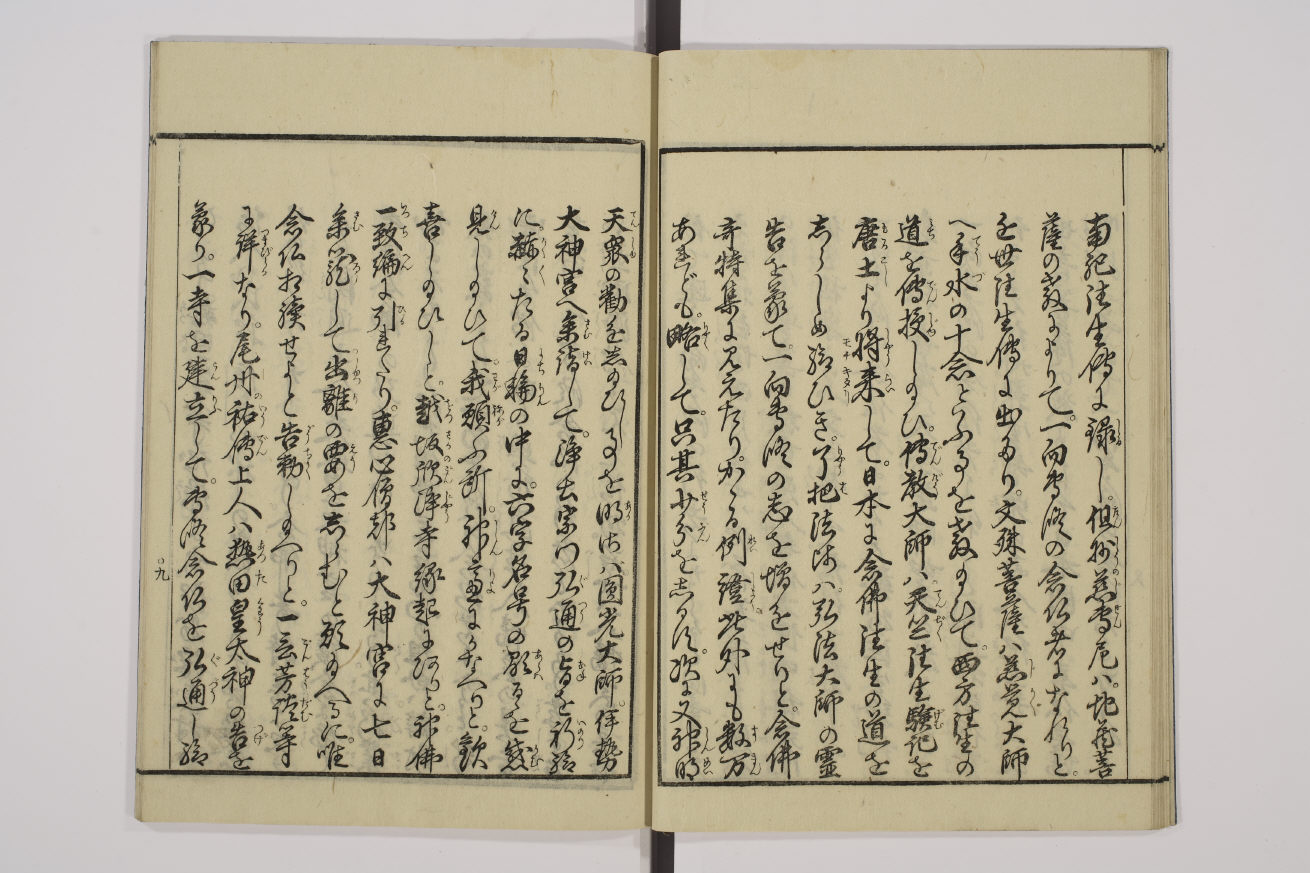 南紀往生傳に録し。但州慧専尼ハ。地蔵菩
薩の教によりて。一向専修の念仏者になれりと。
を世往生傳に出たり。文殊菩薩ハ慈覚大師
へ手水の十念といふ事を教のひて。西方往生の
道を傳授しのひ。傳教大師ハ天竺往生験記を
唐土より将来して。日本に念佛往生の道を
志らしめ給ひき。了把法師ハ。弘法大師の霊
告を蒙て。一向専修の志を増をせりと。念佛
奇特集に見えたり。かゝる例證。此外にも数万
あれども。略して。只其少分を志るす。次に又神明
天衆の勧を志のひし事を明さハ圓光大師。伊勢
大神宮へ参詣して。浄土宗門弘通の旨を祈給
に。赫〻たる日輪の中に。六字名号の顕るを感
見しのひて。我願不断。神慮にかなへりと。歓
喜しのひしと。越坂欣浄寺縁起に河りと。神佛
一致編に引きたり。恵心僧都ハ大神宮に七日
参篭して出離の要を志らむと願のへるに。唯
念仏相續せよと告勅しのへりと。一言芳談等
に詳なり。尾州祐傳上人ハ熱田皇太神の告を
蒙り。一寺を建立して。専修念仏を弘通し給
〇九